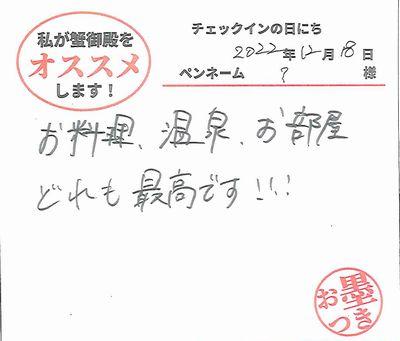 私が蟹御殿を
オススメ
します！
チェックインの日にち
2022年12月18日
ペンネーム ? 様
お料理、温泉、お部屋
どれも最高です!!!
お墨つき